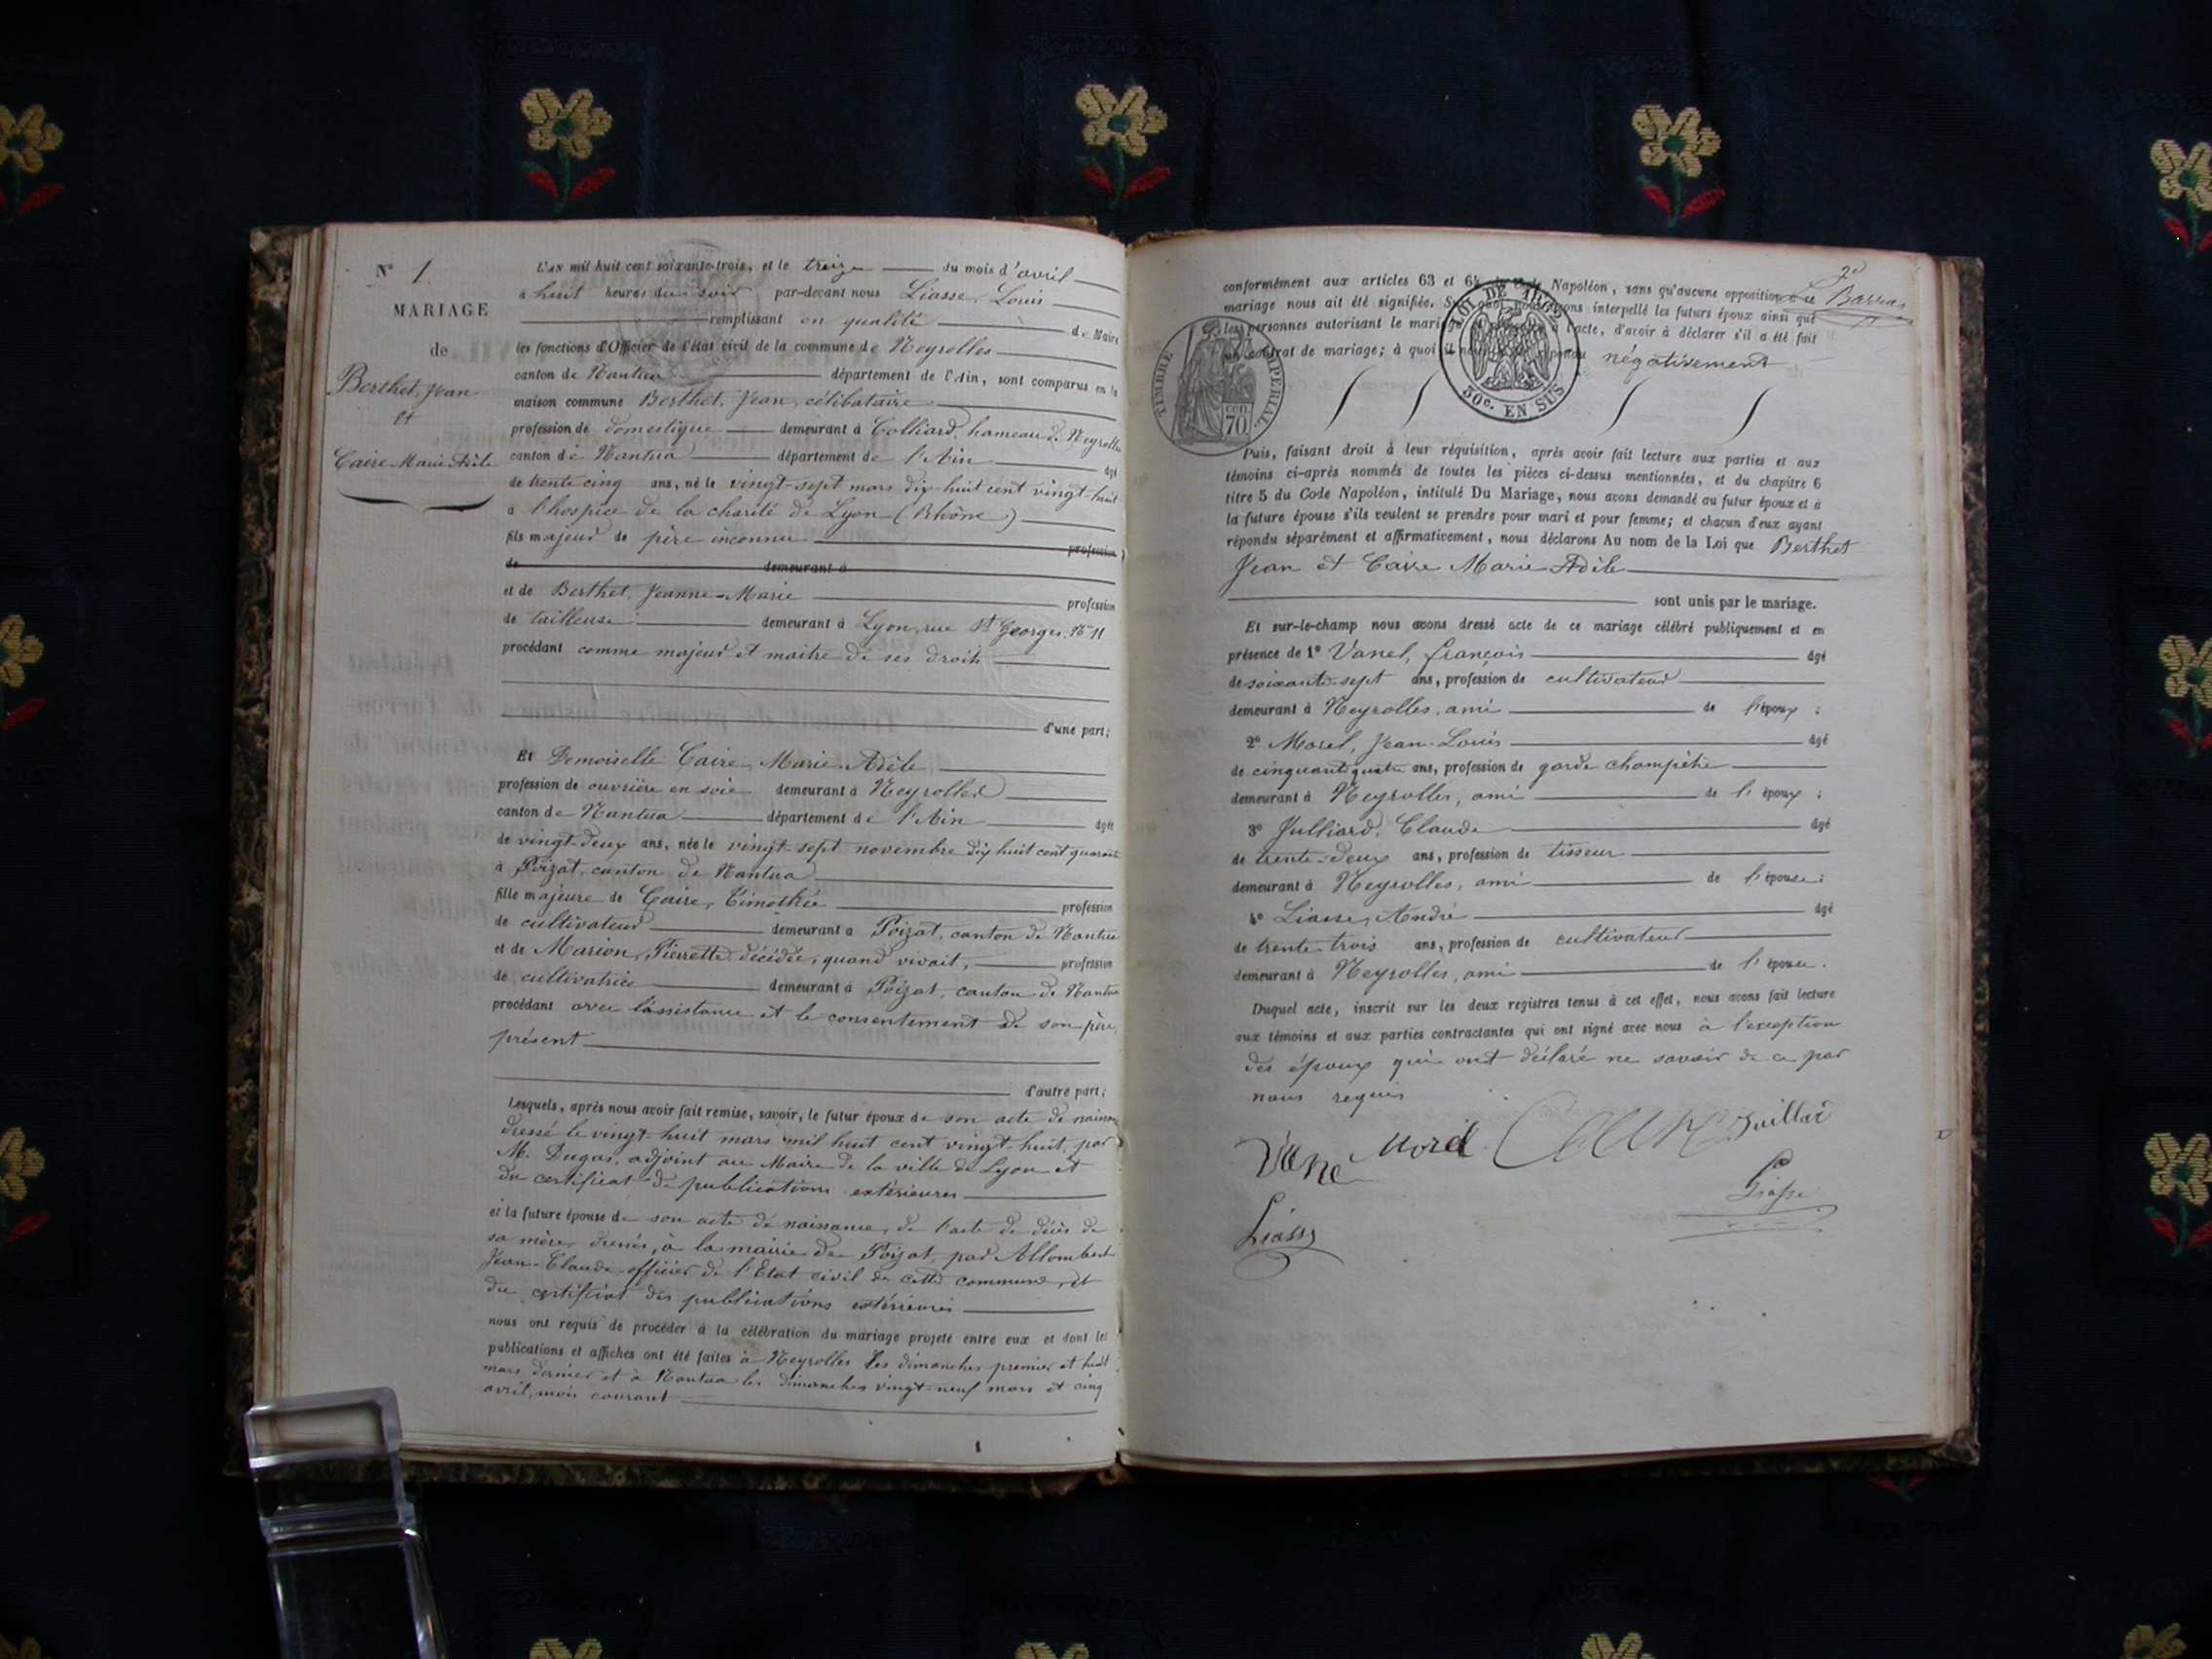 N° 1
MARIAGE
de
Berthet, Jean
et
Caire Marie Adèle
L'AN mil huit cent soixante-trois, et le treize du mois d'avril
à huit heures du soir par-devant nous Liasse, Louis
remplissant en qualité de Maire
les fonctions d'Officier de l'état civil de la commune de Neyrolles
canton de Nantua département de l'Ain, sont comparus en la
maison commune Berthet, Jean, célibataire
profession de domestique demeurant à Colliard, hameau de Neyrolles
canton de Nantua département de l'Ain âgé
de trente cinq ans, né le vingt-sept mars dix-huit cent vingt-huit
à l'hospice de la charité de Lyon (Rhône)
fils majeur de père inconnu profession
de demeurant à
et de Berthet, Jeanne-Marie profession
de tailleuse demeurant à Lyon, rue St Georges, N° 11
procédant comme majeur et maître de ses droits
d'une part;
Et Demoiselle Caire, Marie-Adèle
profession de ouvrière en soie demeurant à Neyrolles
canton de Nantua département de l'Ain âgée
de vingt-deux ans, née le vingt-sept novembre dix huit cent quarante
à Poizat, canton de Nantua
fille majeure de Caire, Timothée profession
de cultivateur demeurant à Poizat, canton de Nantua
et de Marion, Pierrette décédée, quand vivait, profession
de cultivatrice demeurant à Poizat, canton de Nantua
procédant avec l'assistance et le consentement de son père,
présent
d'autre part;
Lesquels, après nous avoir fait remise, savoir, le futur époux de son acte de naissance
dressé le vingt-huit mars mil huit cent vingt-huit, par
M. Dugas, adjoint au Maire de la ville de Lyon et
du certificat de publications extérieures
et la future épouse de son acte de naissance, de l'acte de décès de
sa mère, dressés, à la mairie de Poizat, par Allombert
Jean-Claude officier de l'Etat civil de cette commune, et
du certificat des publications extérieures
nous ont requis de procéder à la célébration du mariage projeté entre eux et dont les
publications et affiches ont été faites à Neyrolles les dimanches premier et huit
mars dernier et à Nantua les dimanches vingt-neuf mars et cinq
avril, mois courant
2e
Le Barras
conformément aux articles 63 et 64 du Code Napoléon, sans qu'aucune opposition à ce
mariage nous ait été signifiée. Sur quoi, nous avons interpellé les futurs époux ainsi que
les personnes autorisant le mariage à l'acte, d'avoir à déclarer s'il a été fait
un contrat de mariage; à quoi il nous a été répondu négativement
TIMBRE IMPÉRIAL
cen. 70
LOI DE 1862
30c. EN SUS
Puis, faisant droit à leur réquisition, après avoir fait lecture aux parties et aux
témoins ci-après nommés de toutes les pièces ci-dessus mentionnées, et du chapitre 6
titre 5 du Code Napoléon, intitulé Du Mariage, nous avons demandé au futur époux et à
la future épouse s'ils veulent se prendre pour mari et pour femme; et chacun d'eux ayant
répondu séparément et affirmativement, nous déclarons Au nom de la Loi que Berthet
Jean et Caire Marie-Adèle
sont unis par le mariage.
Et sur-le-champ nous avons dressé acte de ce mariage célébré publiquement et en
présence de 1° Vanel, françois âgé
de soixante-sept ans, profession de cultivateur
demeurant à Neyrolles, ami de l'époux;
2° Morel, Jean-Louis âgé
de cinquante quatre ans, profession de garde champêtre
demeurant à Neyrolles, ami de l'époux;
3° Julliard, Claude âgé
de trente-deux ans, profession de tisseur
demeurant à Neyrolles, ami de l'épouse;
4° Liasse, André âgé
de trente trois ans, profession de cultivateur
demeurant à Neyrolles, ami de l'épouse.
Duquel acte, inscrit sur les deux registres tenus à cet effet, nous avons fait lecture
aux témoins et aux parties contractantes qui ont signé avec nous à l'exception
des époux qui ont déclaré ne savoir de ce par
nous requis
Morel
Liasse
Liasse